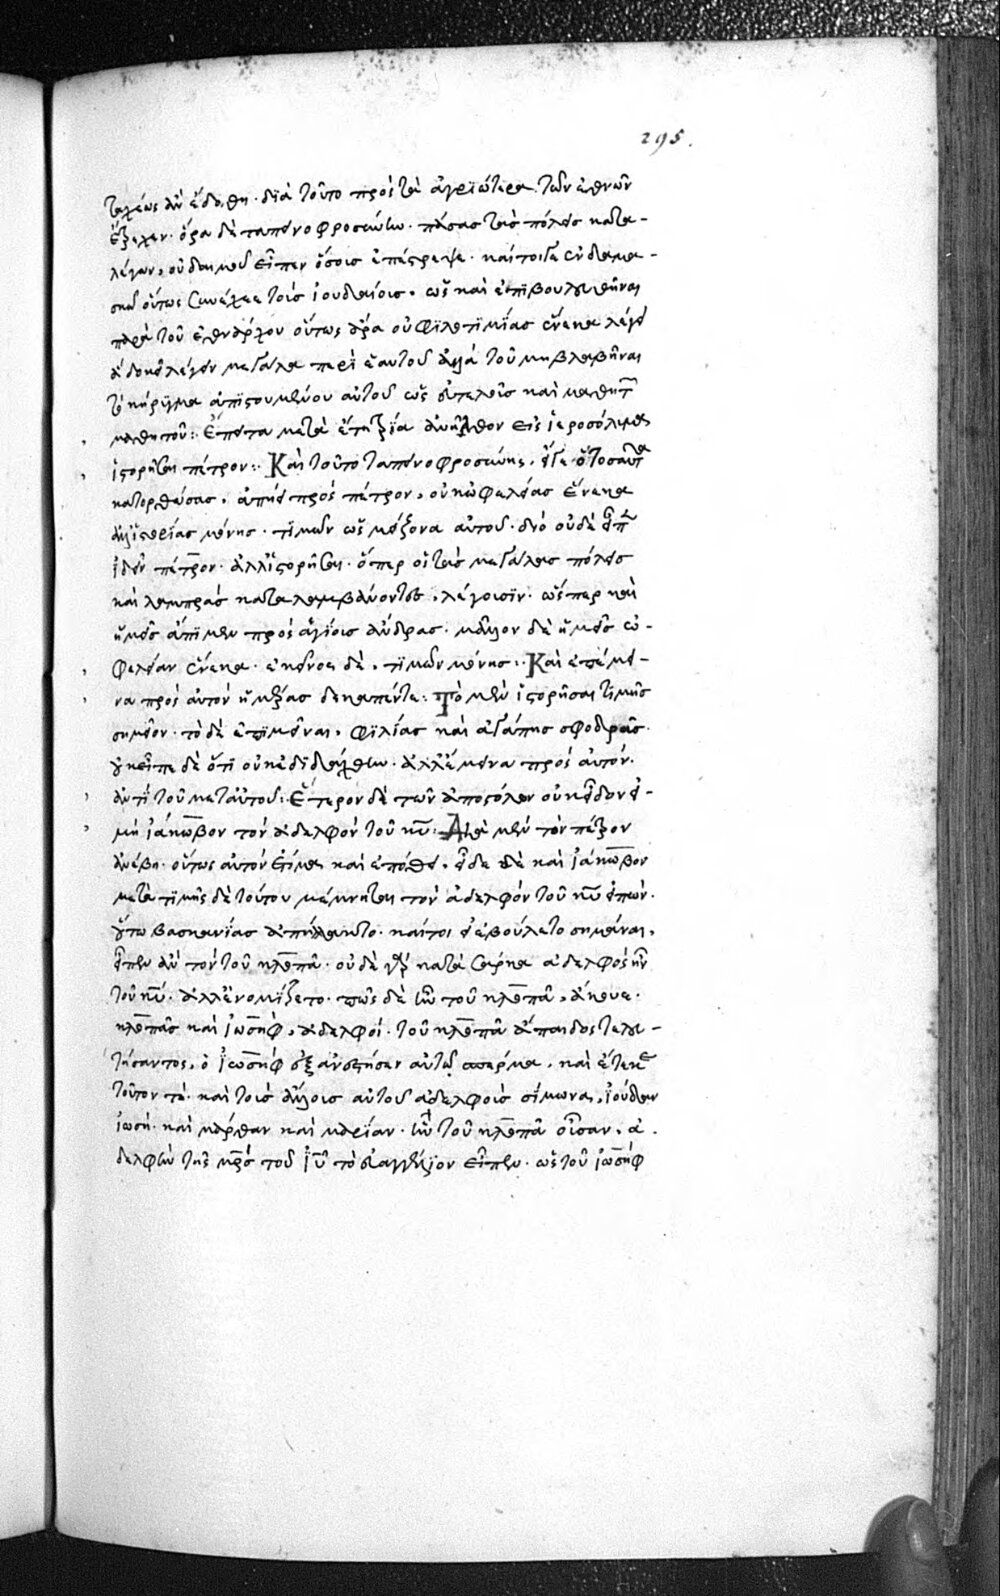 295.
ταχέως ἂν ἐδόθη · διὰ τοῦτο πρὸς τὰ ἀγριώτερα τῶν ἐθνῶν
ἐξέχεν · ὅρα δὲ ταπεινοφροσύνην · πάσας τὰς πόλεις κατα-
λέγων, οὐδαμοῦ εἶπεν ὅσοις ἐπέστρεψε · καίτοιγε ἐν δαμα-
σκῷ οὕτως συνέχεε τοὺς ἰουδαίους · ὡς καὶ ἐπιβουλευθῆναι
παρὰ τοῦ ἐθνάρχου οὕτως ἄρα οὐ φιλοτιμίας ἕνεκα λέγει
ἃ δοκεῖ λέγειν μεγάλα περὶ ἑαυτοῦ ἀλλὰ τοῦ μὴ βλαβῆναι
τὸ κήρυγμα ἀπιστουμένου αὐτοῦ ὡς εὐτελοῦς καὶ μαθητ
μαθητοῦ : Ἔπειτα μετὰ ἔτη τρία ἀνῆλθον εἰς ἱεροσόλυμα
ἱστορῆσαι πέτρον : Καὶ τοῦτο ταπεινοφροσύνης, εἴγε ὁ τοσαῦτα
κατορθώσας, ἄπεισι πρὸς πέτρον, οὐκ ὠφελείας ἕνεκα
ἀλλ' ἱστορίας μόνης · τιμῶν ὡς μείζονα αὐτοῦ · διὸ οὐδὲ εἶπεν
ἰδεῖν πέτρον · ἀλλ' ἱστορῆσαι · ὅπερ οἱ τὰς μεγάλας πόλεις
καὶ λαμπρὰς καταλαμβάνοντες, λέγουσιν · ὥσπερ καὶ
ἡμεῖς ἄπιμεν πρὸς ἁγίους ἄνδρας · μᾶλλον δὲ ἡμεῖς ὠ-
φελείαν ἕνεκα · ἐκεῖνος δὲ, τιμῶν μόνης : Καὶ ἐπέμει-
να πρὸς αὐτὸν ἡμέρας δεκαπέντε : Τὸ μὲν ἱστορῆσαι τιμῆς
σημεῖον · τὸ δὲ ἐπιμεῖναι, φιλίας καὶ ἀγάπης σφοδρᾶς ·
οὐκ εἶπε δὲ ὅτι οὐκ ἐδιδάχθην · ἀλλ' ἔμεινα πρὸς αὐτόν ·
ἀντὶ τοῦ μετ' αὐτοῦ : Ἕτερον δὲ τῶν ἀποστόλων οὐκ εἶδον εἰ-
μὴ ἰάκωβον τὸν ἀδελφὸν τοῦ κυ : Διὰ μὲν τὸν πέτρον
ἀνέβη · οὕτως αὐτὸν ἐτίμα καὶ ἐπόθει, εἶδε δὲ καὶ ἰάκωβον
μετὰ τιμῆς δὲ τούτου μέμνηται τὸν ἀδελφὸν τοῦ κυ εἰπών ·
οὕτω βασκανίας ἀπήλλακτο · καίτοι εἰ ἐβούλετο σημᾶναι,
εἶπεν ἂν τὸν τοῦ κλεπᾶ · οὐδὲ γὰρ κατὰ σάρκα ἀδελφὸς ἦν
τοῦ κυ · ἀλλ' ἐνομίζετο · πῶς δὲ ἦν τοῦ κλεπᾶ, ἄκουε ·
κλεπᾶς καὶ ἰωσήφ, ἀδελφοί · τοῦ κλεπᾶ ἄπαιδος τελευ-
τήσαντος, ὁ ἰωσήφ ἐξανέστησεν αὐτῷ σπέρμα, καὶ ἔτεκε
τοῦτόν τε · καὶ τοὺς ἄλλους αὐτοῦ ἀδελφοὺς σίμωνα, ἰούδαν
ἰωσή · καὶ μάρθαν καὶ μαρίαν · ἣν τοῦ κλεπᾶ οὖσαν, ἀ-
δελφὴν τῆς μρς τοῦ ιυ τὸ εὐαγγέλιον εἶπεν · ὡς τοῦ ἰωσήφ